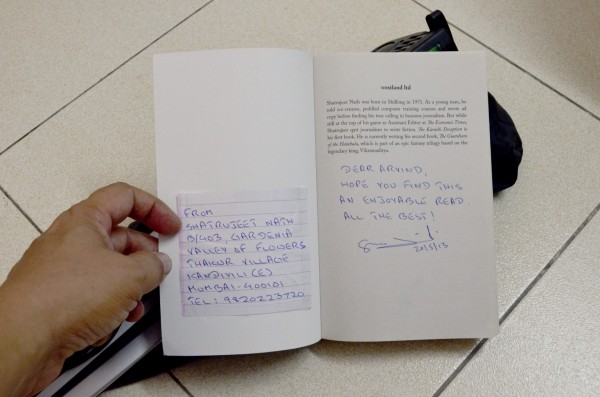 FROM
SHATRUJEET NATH
B/403, GARDENIA
VALLEY OF FLOWERS
THAKUR VILLAGE
KANDIVILI (E)
MUMBAI-400101
TEL: 9820223720
westland ltd
Shatrujeet Nath was born in Shillong in 1971. As a young man, he
sold ice-creams, peddled computer training courses and wrote ad
copy before finding his true calling in business journalism. But while
still at the top of his game as Assistant Editor at The Economic Times,
Shatrujeet quit journalism to write fiction. The Karachi Deception is
his first book. He is currently writing his second book, The Guardians
of the Halahala, which is part of an epic fantasy trilogy based on the
legendary king, Vikramaditya.
DEAR ARVIND,
HOPE YOU FIND THIS
AN ENJOYABLE READ.
ALL THE BEST!
20/5/13